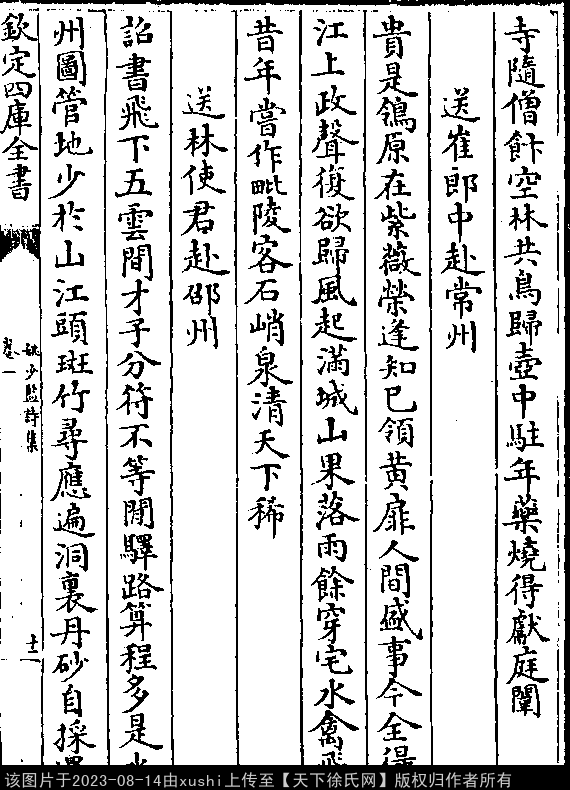 寺隨僧飰空林共鳥歸壺中駐年藥燒得獻庭闈
送崔郎中赴常州
貴是鴒原在紫薇榮逢知已領黄扉人間盛事今全得
江上政聲復欲歸風起滿城山果落雨餘穿宅水禽飛
昔年嘗作毗陵客石峭泉清天下稀
送林使君赴邵州
詔書飛下五雲間才子分符不等閒驛路算程多是水
州圖管地少於山江頭斑竹尋應遍洞裏丹砂自採還
欽定四庫全書
姚少監詩集
卷一
十一
该图片于2023-08-14由xushi上传至【天下徐氏网】版权归作者所有